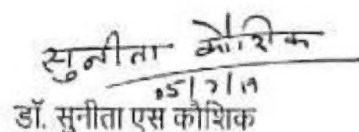 सुनीता कौशिक
05/7/19
डॉ. सुनीता एस कौशिक